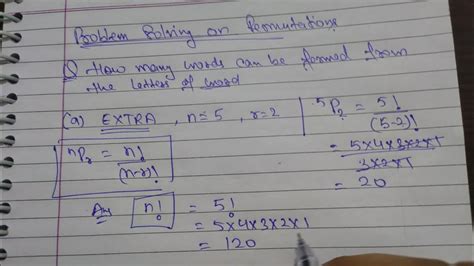 Problem Solving on Permutations
Q How many words can be formed from
the letters of word
(a) EXTRA , n=5 , r=2
ⁿPr = n!/(n-r)!
Ans n! = 5!
= 5×4×3×2×1
= 120
⁵P₂ = 5!/(5-2)!
= 5×4×3×2×1/3×2×1
= 20